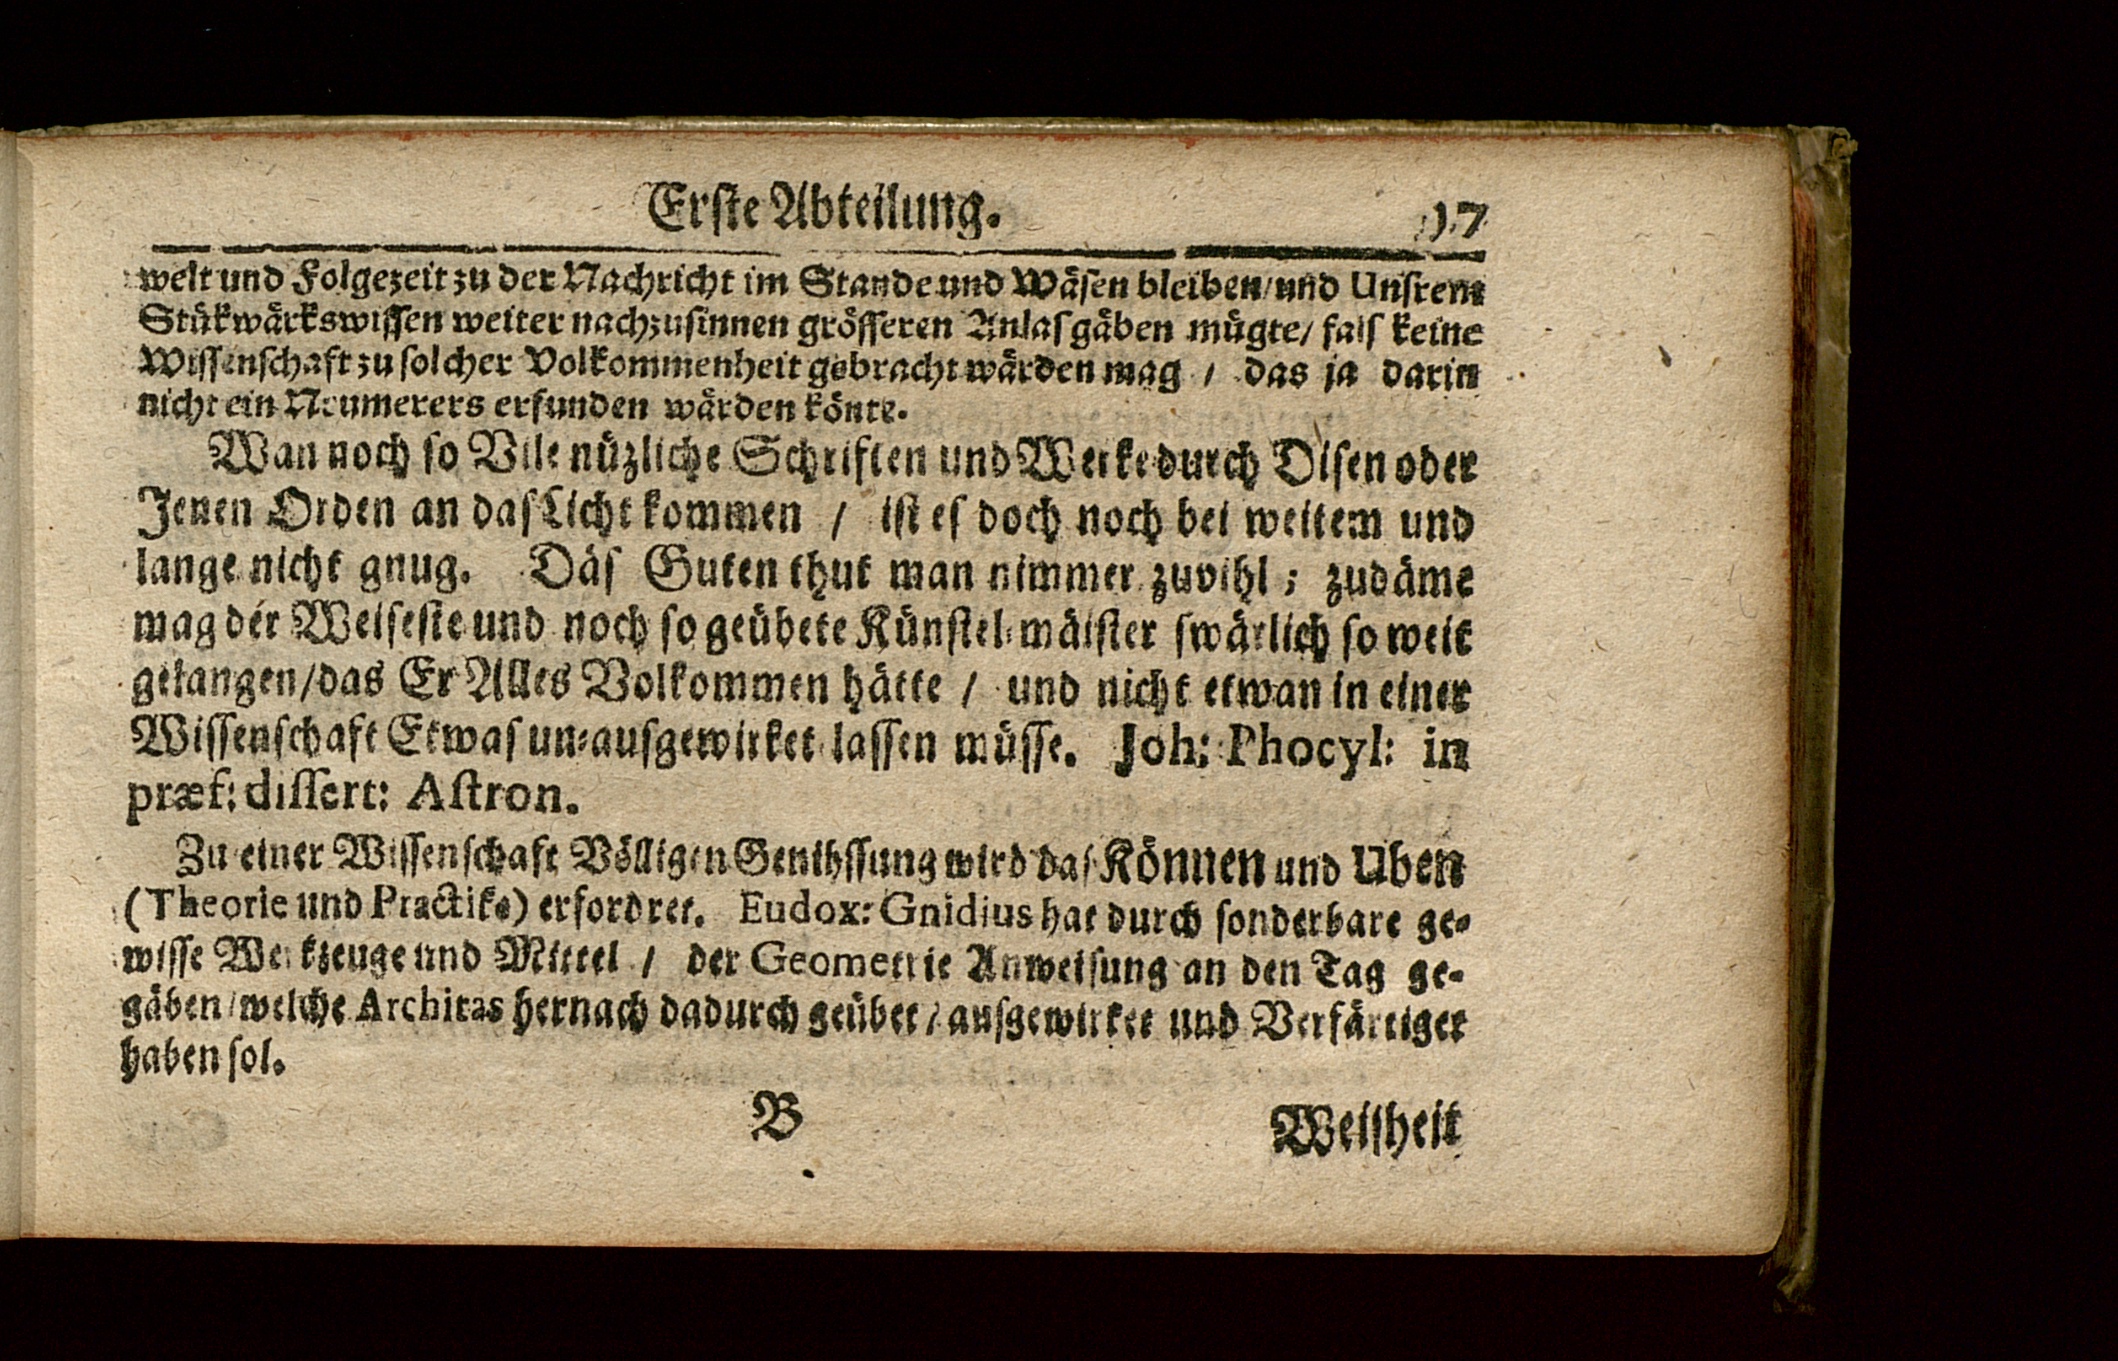 Erſte Abteilung. 17
welt und Folgezeit zu der Nachricht im Stande und Wäſen bleiben/und Unſrem
Stükwärkswiſſen weiter nachzuſinnen gröſſeren Anlaſ gäben mügte/ falſ keine
Wiſſenſchaft zu ſolcher Volkommenheit gebracht wärden mag / das ja darin
nicht ein Neumerers erfunden wärden könte.
Wan noch ſo Vile nüzliche Schriften und Werke durch Diſen oder
Jenen Orden an daſ Licht kommen / iſt eſ doch noch bei weitem und
lange nicht gnug. Däſ Guten thut man nimmer zuvihl; zudäme
mag der Weiſeſte und noch ſo geübete Künſtel⸗mäiſter ſwärlich ſo weit
gelangen/das Er Alles Volkommen hätte / und nicht etwan in einer
Wiſſenſchaft Etwaſ un⸗auſgewirket laſſen müſſe. Joh: Phocyl: in
præf: diſſert: Aſtron.
Zu einer Wiſſenſchaft Völligen Genihſſung wird daſ Können und Uben
(Theorie und Practike) erfordret. Eudox: Gnidius hat durch ſonderbare ge⸗
wiſſe Werkzeuge und Mittel / der Geometrie Anweiſung an den Tag ge⸗
gäben/welche Architas hernach dadurch geübet/auſgewirket und Verfärtiget
haben ſol.
B Weiſheit